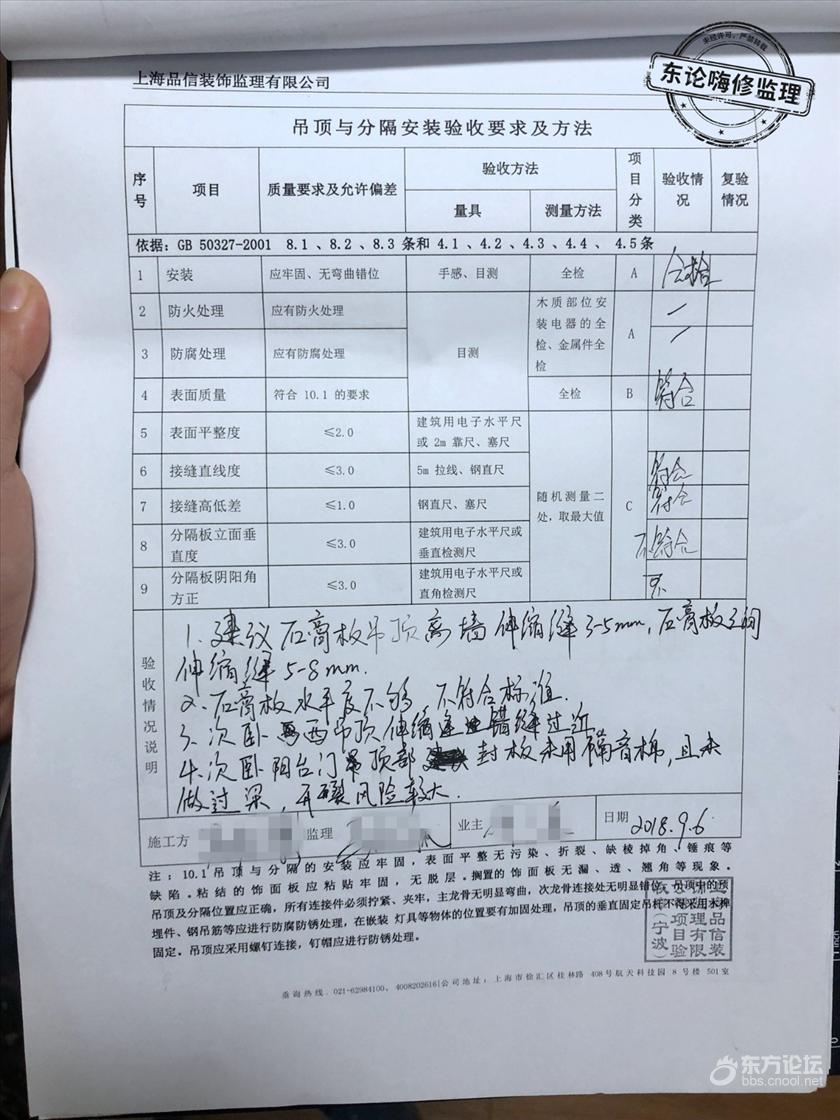 上海品信装饰监理有限公司
未经许可,严禁转载
东论嗨修监理
吊顶与分隔安装验收要求及方法
序号 项目 质量要求及允许偏差 验收方法 项目分类 验收情况 复验情况
量具 测量方法
依据: GB 50327-2001 8.1、8.2、8.3 条和 4.1、4.2、4.3、4.4、 4.5条
1 安装 应牢固、无弯曲错位 手感、目测 全检 A
2 防火处理 应有防火处理 目测 木质部位安装电器的全检、金属件全检 A 一
3 防腐处理 应有防腐处理 一
4 表面质量 符合 10.1 的要求 全检 B 符合
5 表面平整度 ≤2.0 建筑用电子水平尺或 2m 靠尺、塞尺 随机测量二处,取最大值 C
6 接缝直线度 ≤3.0 5m 拉线、钢直尺 符合
7 接缝高低差 ≤1.0 钢直尺、塞尺 符合
8 分隔板立面垂直度 ≤3.0 建筑用电子水平尺或垂直检测尺 不符合
9 分隔板阴阳角方正 ≤3.0 建筑用电子水平尺或直角检测尺
验收情况说明
1、建议石膏板吊顶离墙伸缩缝3-5mm,石膏板之间
伸缩缝5-8mm.
2、石膏板水平度不够 不符合标准.
3、次卧 西吊顶伸缩缝 错缝过近
4、次卧阳台门吊顶部 封板未用隔音棉,且未
做过梁,开裂风险较大.
施工方 监理 业主 日期 2018.9.6
注:10.1吊顶与分隔的安装应牢固,表面平整无污染、折裂、缺棱掉角、锤痕等
缺陷。粘结的饰面板应粘贴牢固,无脱层。搁置的饰面板无漏、透、翘角等现象。
吊顶及分隔位置应正确,所有连接件必须拧紧、夹牢,主龙骨无明显弯曲,次龙骨连接处无明显错位。吊顶中的预
埋件、钢吊筋等应进行防腐防锈处理,在嵌装 灯具等物体的位置要有加固处理,吊顶的垂直固定吊杆不得采用木榫
固定。吊顶应采用螺钉连接,钉帽应进行防锈处理。
查询热线:021-62984100、4008202616|公司地址:上海市徐汇区桂林路 408号航天科技园 8号楼 501室
东方论坛
bbs.cnool.net